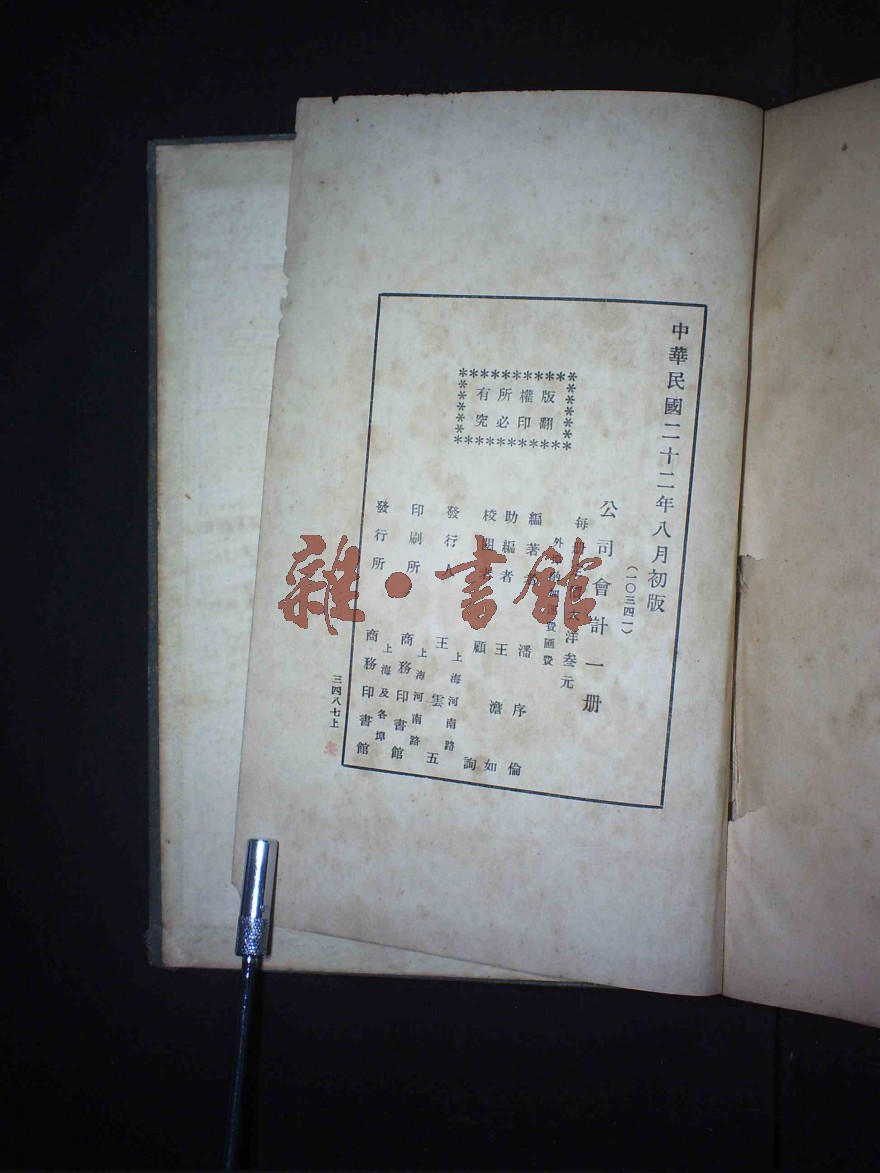 中華民國二十二年八月初版
(一〇三四一)
公司會計一册
每册大洋叁元
外費匯費
版權所有
翻印必究
編著 潘序倫
助編者 王澹如
校閱者 顧詢
發行人 王雲五
上海河南路
印刷所 商務印書館
上海河南路
發行所 商務印書館
上海及各埠
三四八七上
雜·書館